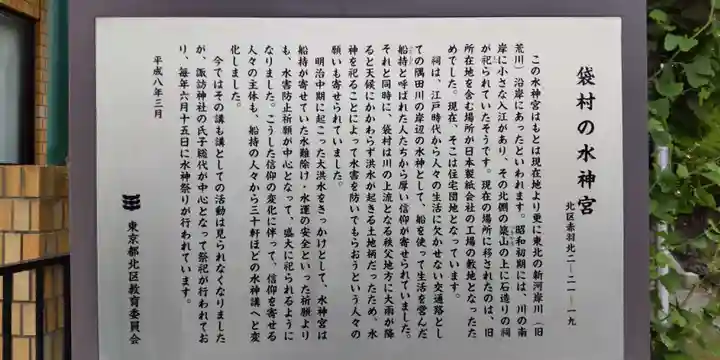 袋村の水神宮
北区赤羽北二-二一-一九
この水神宮はもとは現在地より更に東北の新河岸川（旧
荒川）沿岸にあったといわれます。昭和初期には、川の南
岸に小さな入江があり、その北側の築山の上に石造りの祠
が祀られていたそうです。現在の場所に移されたのは、旧
所在地を含む場所が日本製紙会社の工場の敷地となったた
めでした。現在、そこは住宅団地となっています。
祠は、江戸時代から人々の生活に欠かせない交通路とし
ての隅田川の岸辺の水神として、船を使って生活を営んだ
船持と呼ばれた人たちから厚い信仰が寄せられていました。
それと同時に、袋村は川の上流となる秩父地方に大雨が降
ると天候にかかわらず洪水が起きる土地柄だったため、水
神を祀ることによって水害を防いでもらおうという人々の
願いも寄せられていました。
明治中期に起こった大洪水をきっかけとして、水神宮は
船持が寄せていた水難除け・水運の安全といった祈願より
も、水害防止祈願が中心となって、盛大に祀られるように
なりました。こうした信仰の変化に伴って、信仰を寄せる
人々の主体も、船持の人々から三十軒ほどの水神講へと変
化しました。
今ではその講も講としての活動は見られなくなりました
が、諏訪神社の氏子総代が中心となって祭祀が行われてお
り、毎年六月十五日に水神祭りが行われています。
平成八年三月
東京都北区教育委員会